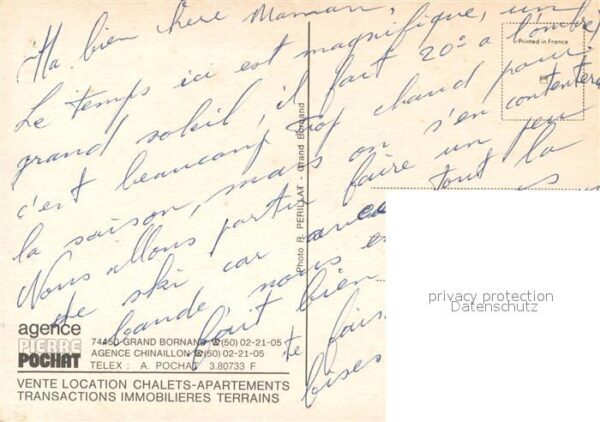 Ma bien chère Maman,
Le temps ici est magnifique, un
grand soleil, il fait 20° a l'ombre,
c'est beaucoup trop chaud pour
la saison, mais on s'en contentera
Nous allons partir faire un peu
de ski car avec tout la
bande nous
fait bien
te fais
bises
Printed in France
Photo R. PERILLAT - Grand Bornand
privacy protection
Datenschutz
agence
PIERRE
POCHAT
74450 GRAND BORNAND ☎(50) 02-21-05
AGENCE CHINAILLON ☎(50) 02-21-05
TELEX : A. POCHAT 3.80733 F
VENTE LOCATION CHALETS-APARTEMENTS
TRANSACTIONS IMMOBILIERES TERRAINS